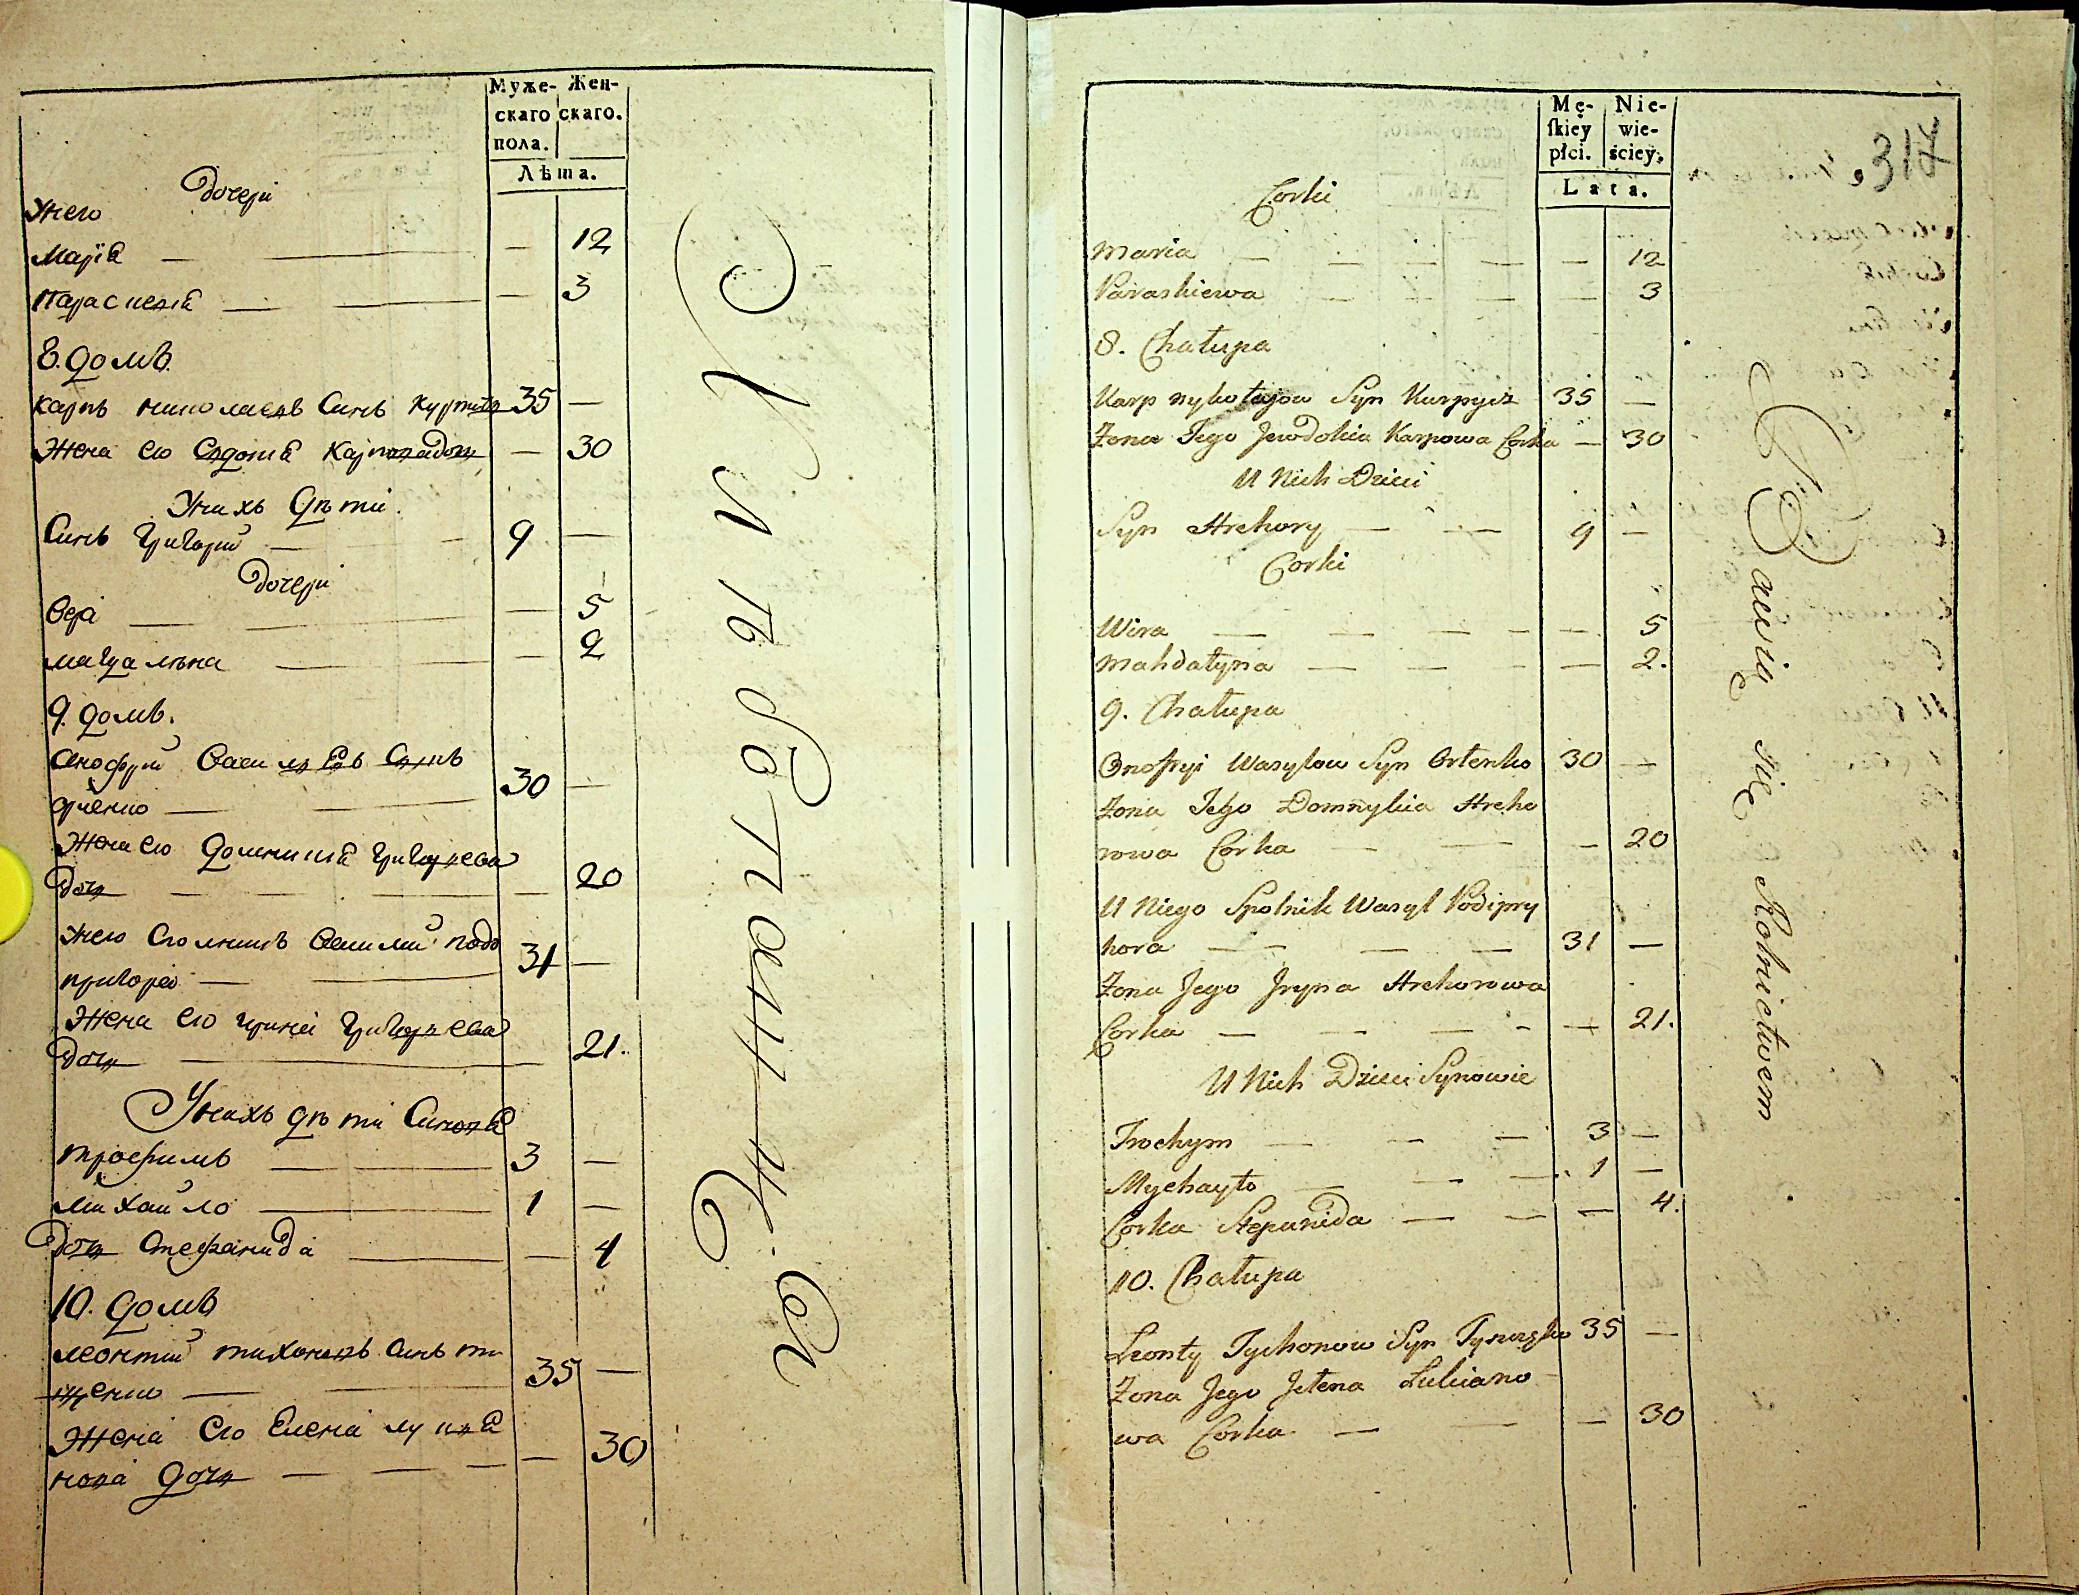 Муже-
скаго
пола.
Жен-
скаго.
Лѣта.
Унего дочери
Марiя — — 12
Параскевiя — — 3
8. домъ.
Карпъ николаевъ Синъ 35 —
Жена его Евдокия Карпова дочь — 30
Унихъ дѣти.
Синъ Григорий — 9 —
дочери
Вера — — 5
магдалѣна — — 2
9. домъ.
Анофрий Васильевъ Синъ
орленко — 30 —
Жена его Домникия Григорьева
дочь — — 20
Унего Сполникъ Василий подо
пригора — 31 —
Жена его Ирина Григорьева
дочь — — 21.
Унихъ дѣти Синовя
трофимъ — 3 —
Михайло — 1 —
дочь Стефанида — — 4
10. домъ
леонтий тихоновъ Синъ ти
щенко — 35 —
Жена Его Елена лукия
нова дочь — — 30
Хлѣбопашцы
Mę-
skiey
płci.
Nie-
wie-
ściey.
Lata.
317
Corki
Maria — — 12
Paraskiewa — — 3
8. Chałupa
Karp Mykołajow Syn Kurpycz 35 —
Żona Jego Jewdokia Karpowa Corka — 30
U Nich Dzieci
Syn Hrehory — 9 —
Corki
Wira — — 5
Mahdałyna — — 2.
9. Chałupa
Onofryi Wasylow Syn Orłenko 30 —
Żona Jego Domnykia Hreho
rowa Corka — — 20
U Niego Spolnik Wasyl Podipry
hora — 31 —
Żona Jego Jryna Hrehorowa
Corka — — 21.
U Nich Dzieci Synowie
Trochym — 3 —
Mychayło — 1 —
Corka Stepanida — — 4.
10. Chałupa
Leonty Tychonow Syn 35 —
Żona Jego Jełena Lukiano
wa Corka — — 30
Bawią się Rolnictwem